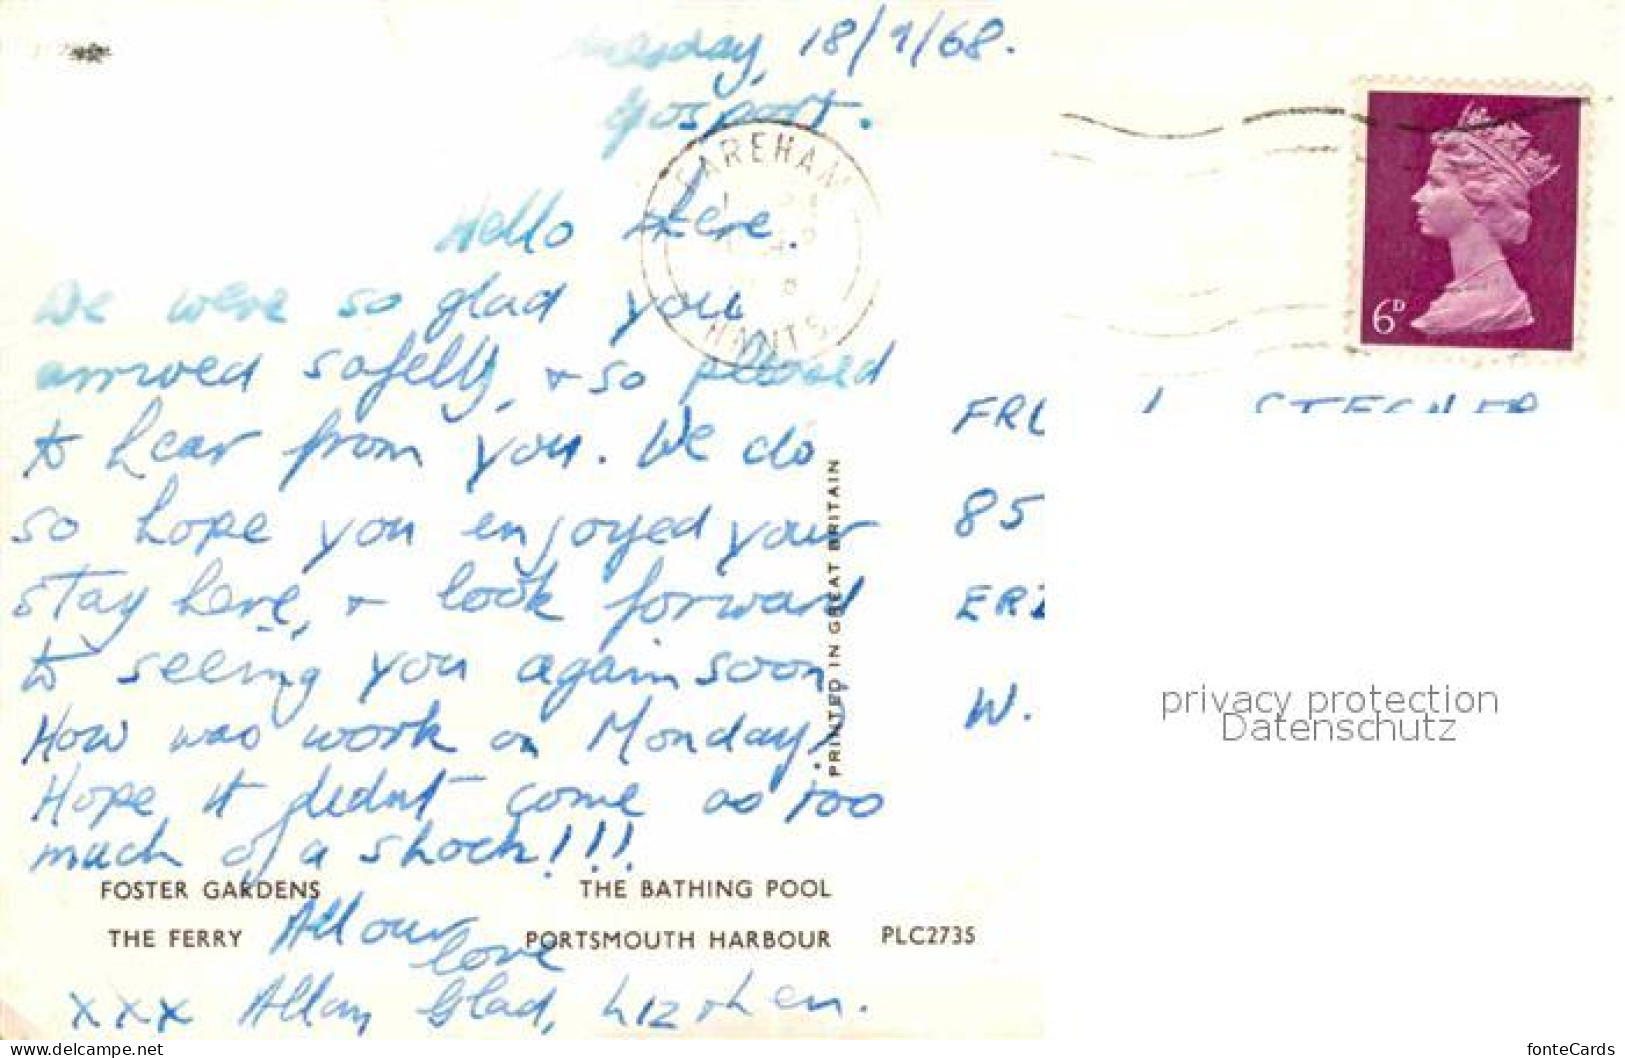 18/9/68.
Gosport.
FAREHAM
HANTS
Hello there.
We were so glad you
arrived safelly, + so pleased
to hear from you. We do
so hope you enjoyed your
stay here, + look forward
to seeing you again soon
How was work on Monday?
Hope it didnt come as too
much of a shock!!!
All our
love
xxx Allan, Glad, Liz + Len.
6D
85
W.
PRINTED IN GREAT BRITAIN
FOSTER GARDENS THE BATHING POOL
THE FERRY PORTSMOUTH HARBOUR PLC2735
privacy protection
Datenschutz
www.delcampe.net/en_US/collectibles
fonteCards